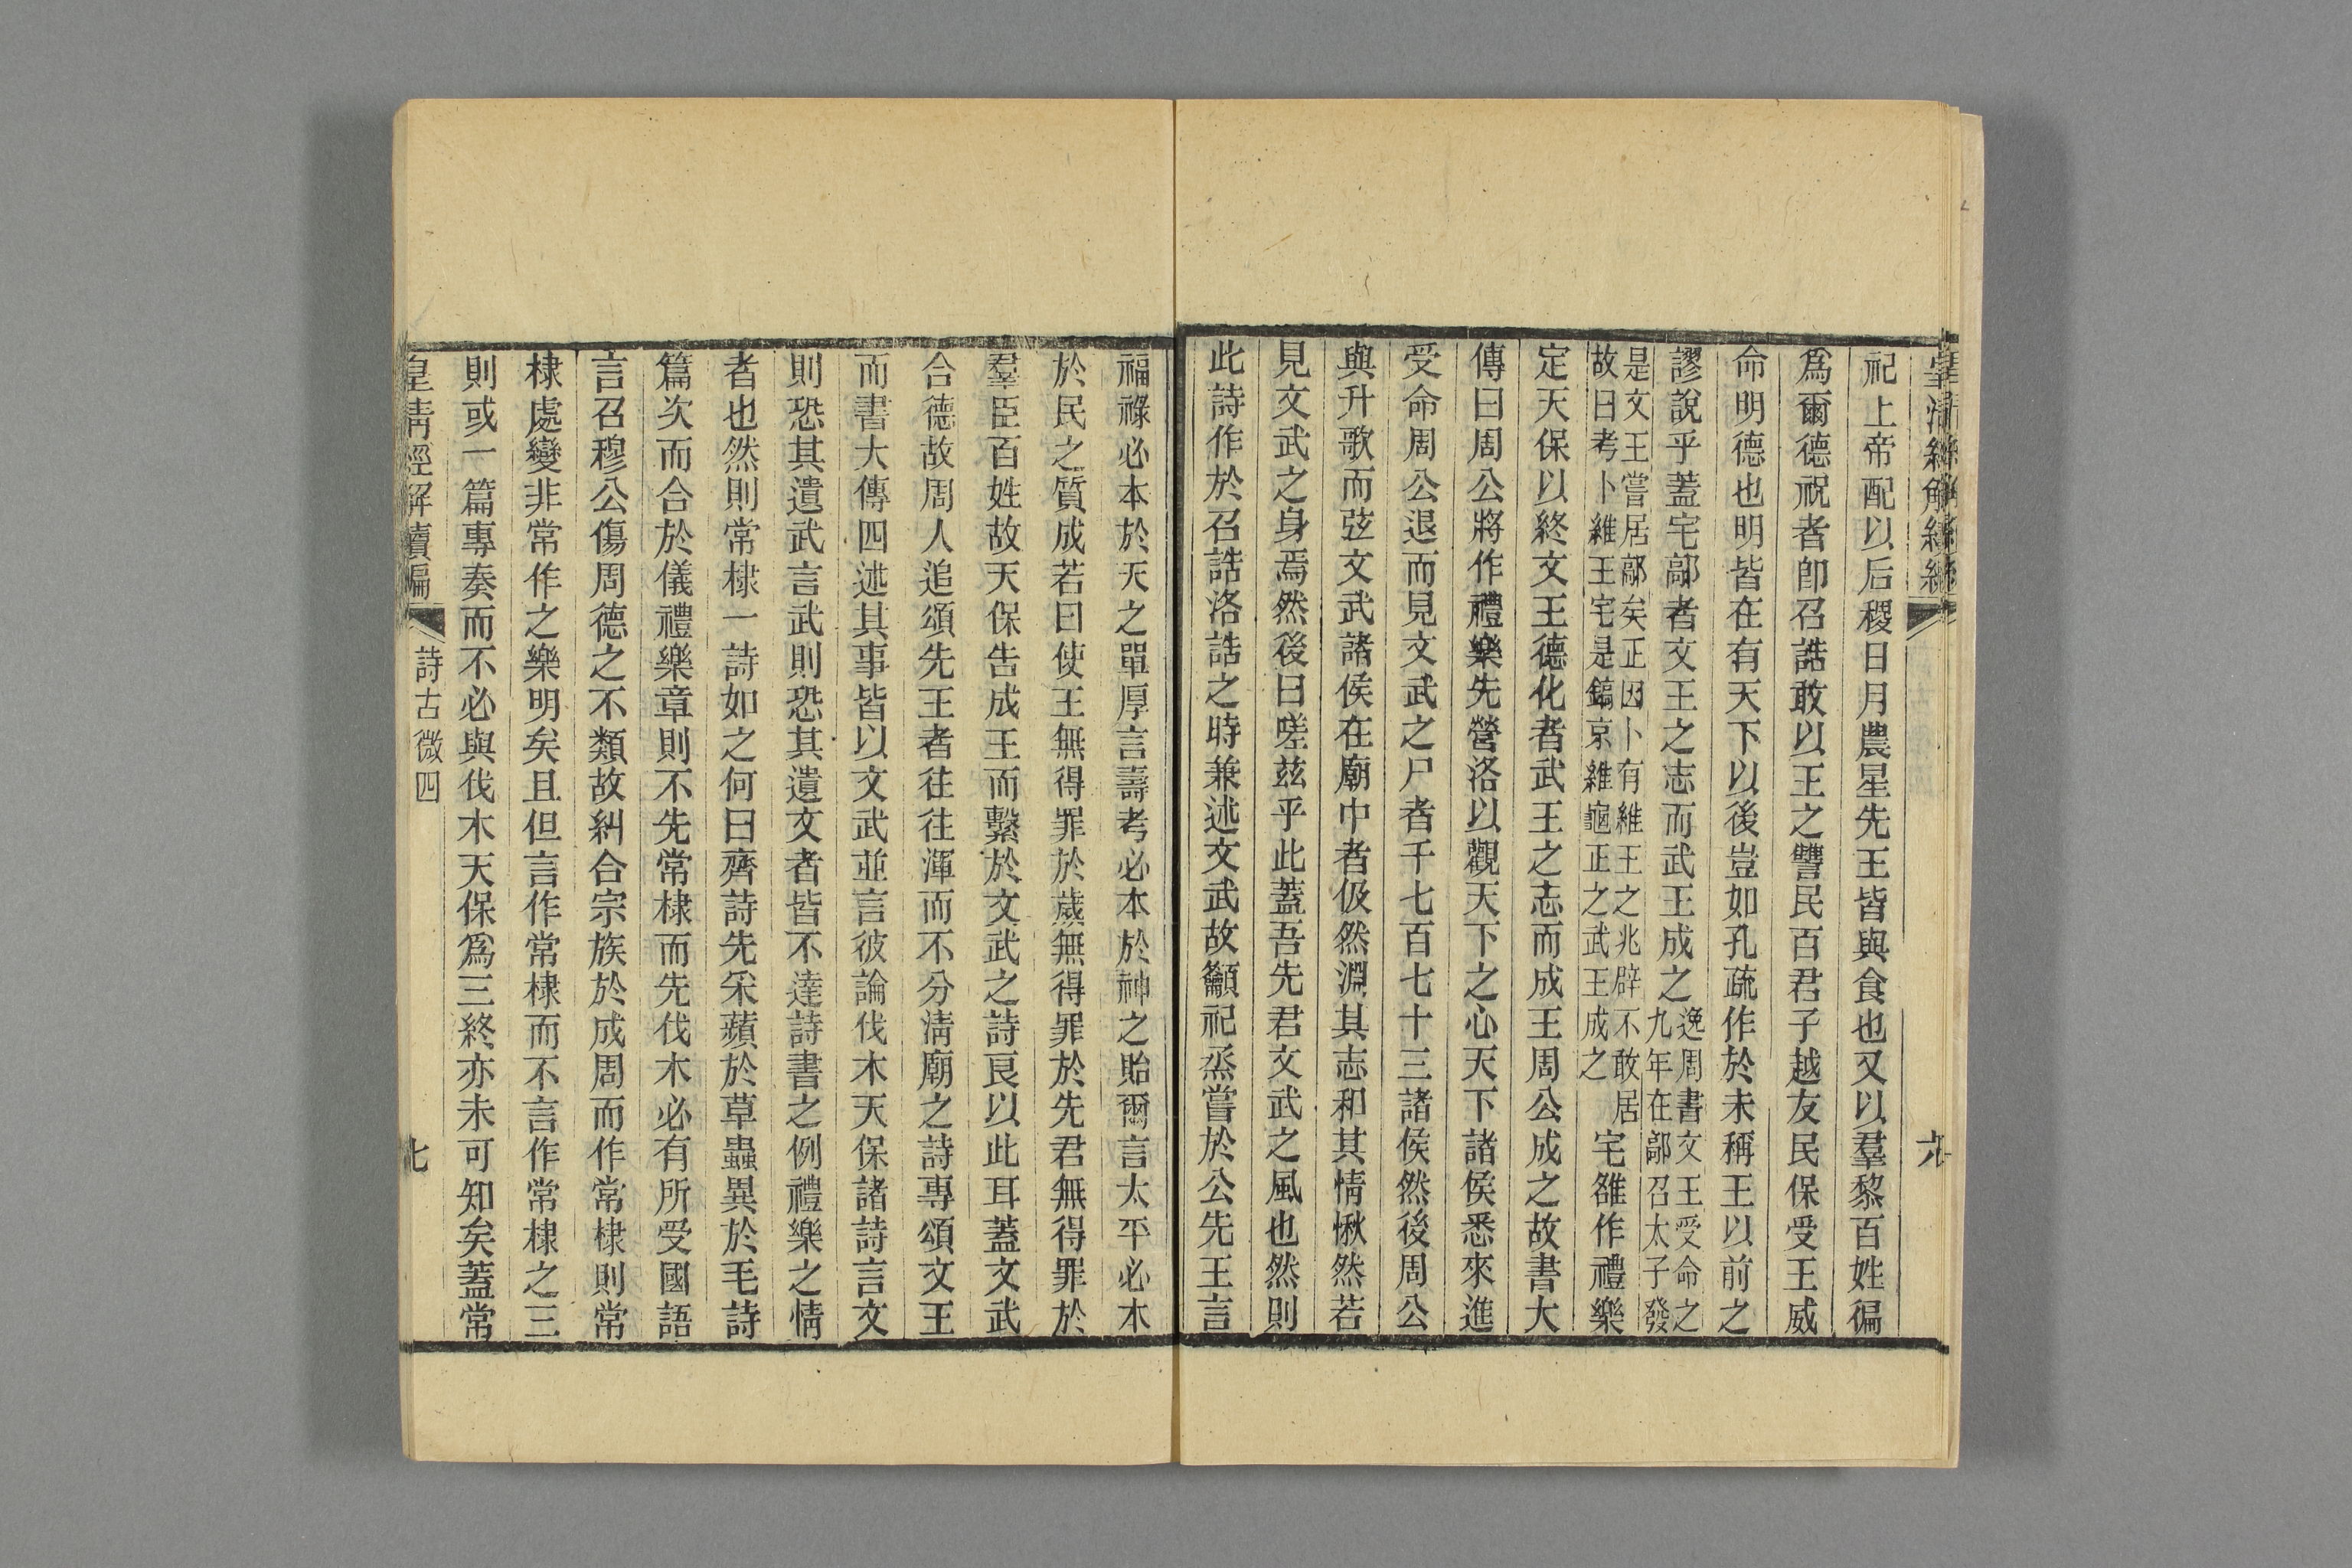 皇清經解續編
六
祀上帝配以后稷日月農星先王皆與食也又以羣黎百姓徧
爲爾德祝者卽召誥敢以王之讐民百君子越友民保受王威
命明德也明皆在有天下以後豈如孔疏作於未稱王以前之
謬說乎蓋宅鄗者文王之志而武王成之逸周書文王受命之
九年在鄗召太子發
是文王嘗居鄗矣正因卜有維王之兆辟不敢居
故曰考卜維王宅是鎬京維龜正之武王成之宅雒作禮樂
定天保以終文王德化者武王之志而成王周公成之故書大
傳曰周公將作禮樂先營洛以觀天下之心天下諸侯悉來進
受命周公退而見文武之尸者千七百七十三諸侯然後周公
與升歌而弦文武諸侯在廟中者伋然淵其志和其情愀然若
見文武之身焉然後曰嗟茲乎此蓋吾先君文武之風也然則
此詩作於召誥洛誥之時兼述文武故籲祀烝嘗於公先王言
福祿必本於天之單厚言壽考必本於神之貽爾言太平必本
於民之質成若曰使王無得罪於歲無得罪於先君無得罪於
羣臣百姓故天保告成王而繫於文武之詩良以此耳蓋文武
合德故周人追頌先王者往往渾而不分淸廟之詩專頌文王
而書大傳四述其事皆以文武並言彼論伐木天保諸詩言文
則恐其遺武言武則恐其遺文者皆不達詩書之例禮樂之情
者也然則常棣一詩如之何曰齊詩先采蘋於草蟲異於毛詩
篇次而合於儀禮樂章則不先常棣而先伐木必有所受國語
言召穆公傷周德之不類故糾合宗族於成周而作常棣則常
棣處變非常作之樂明矣且但言作常棣而不言作常棣之三
則或一篇專奏而不必與伐木天保爲三終亦未可知矣蓋常
皇淸經解續編
詩古微四
七